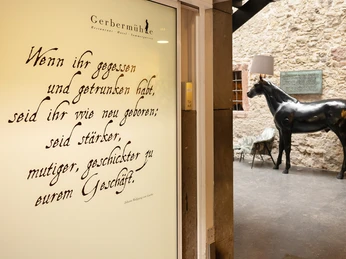 Gerbermühle
Restaurant · Hotel · Sommergarten
Wenn ihr gegessen
und getrunken habt,
seid ihr wie neu geboren;
seid stärker,
mutiger, geschickter zu
eurem Geschäft.